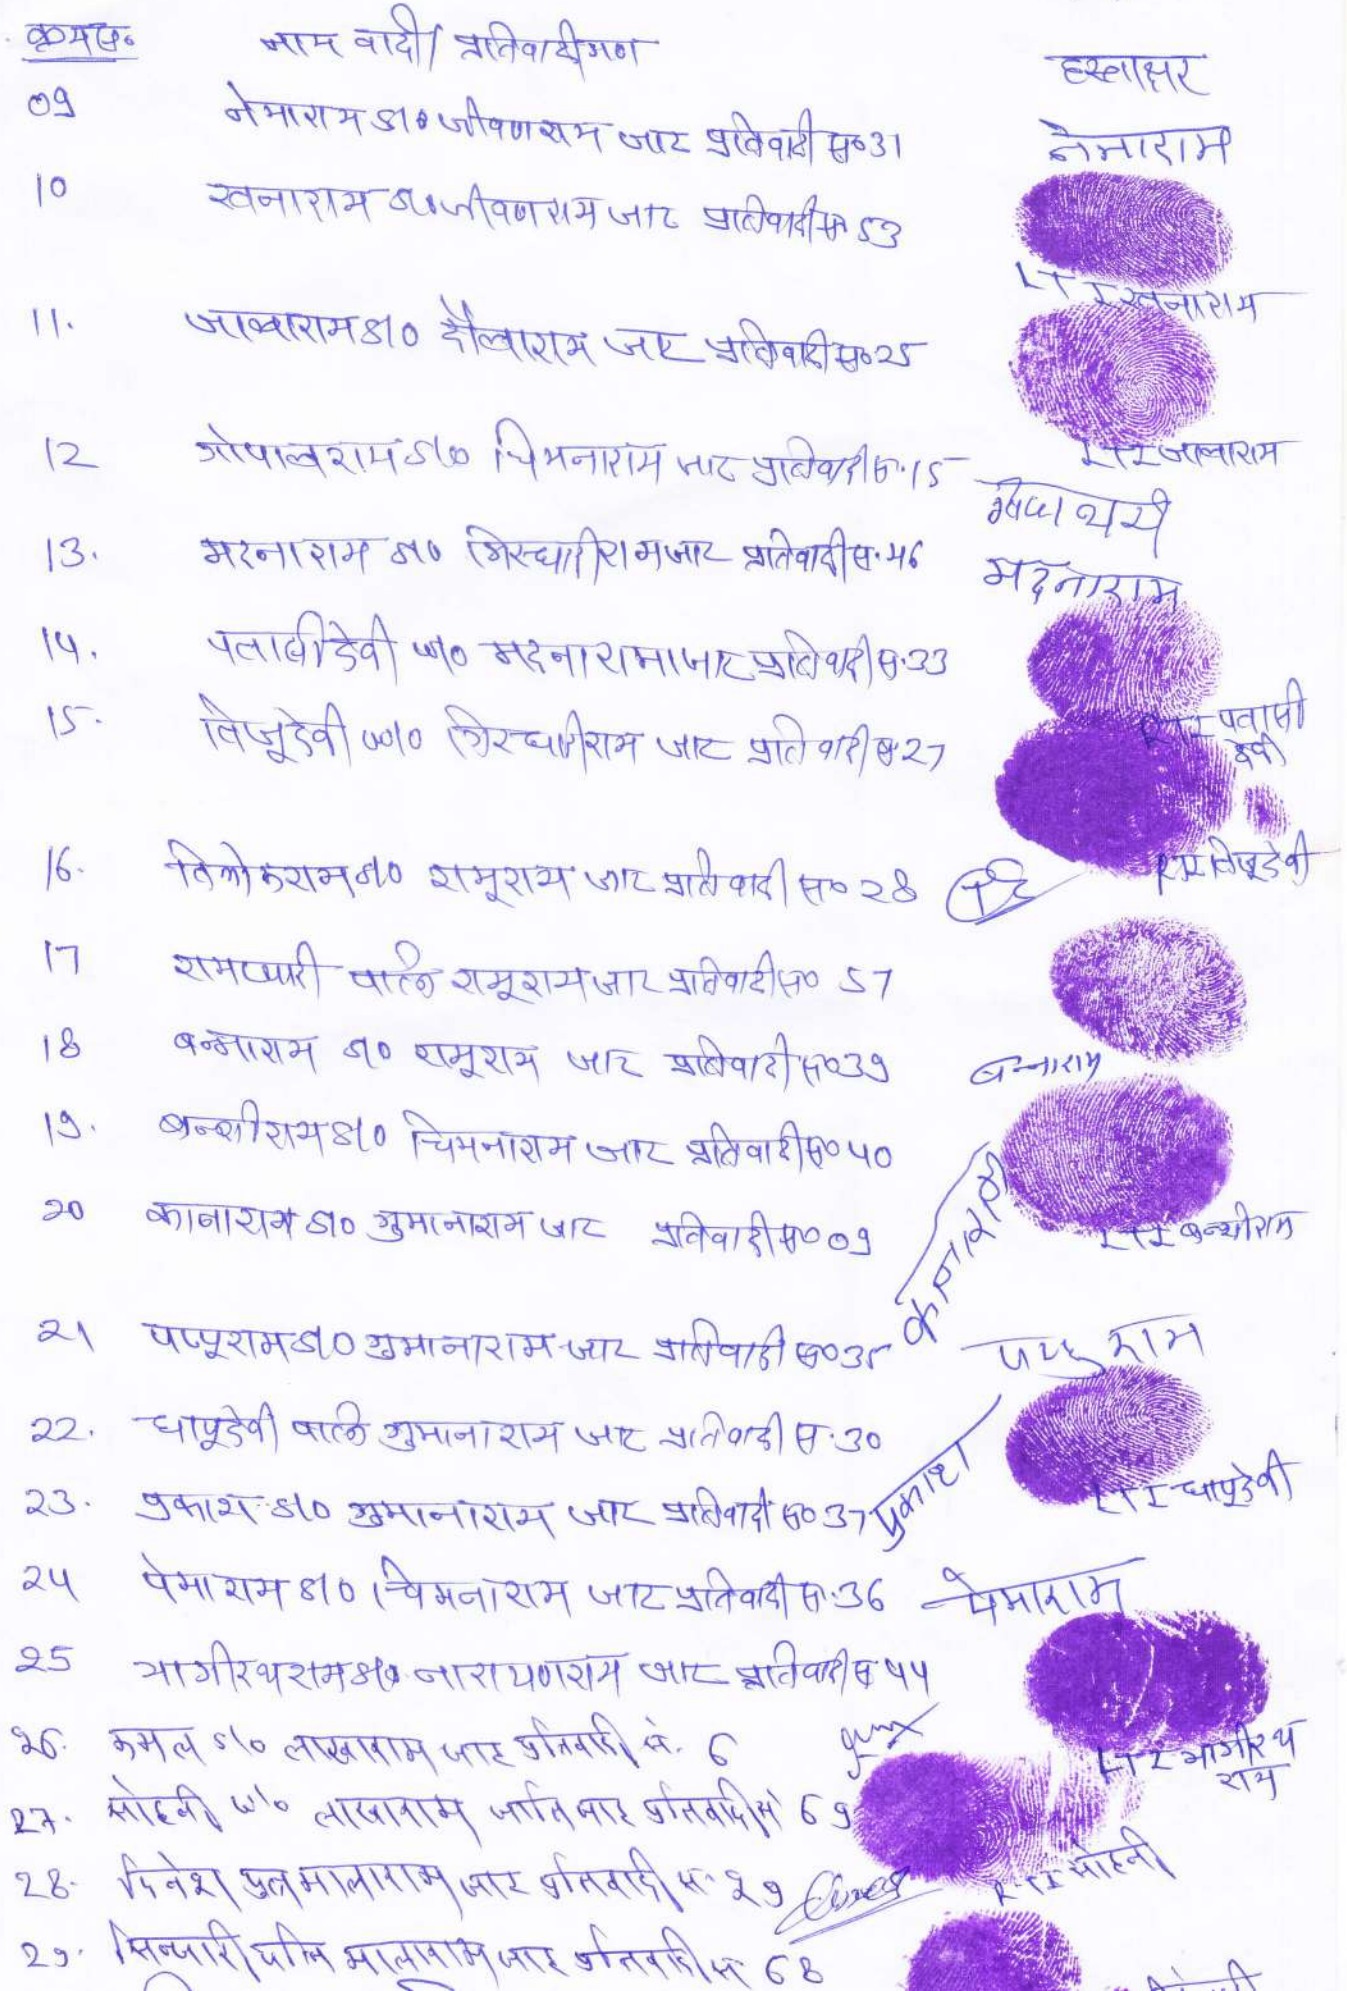 क्रमसं० नाम वादी/प्रतिवादीगण हस्ताक्षर
09 नेमाराम S/o जीवणराम जाट प्रतिवादी स०31 नेमाराम
10 रवनाराम S/o जीवणराम जाट प्रतिवादी स 53
LTI रवनाराम
11. जालाराम S/o दौलाराम जाट प्रतिवादी स०25
LTI जालाराम
12 गोपालराम S/o चिमनाराम जाट प्रतिवादी स.15
13. मदनाराम S/o गिरधारीराम जाट प्रतिवादी स.46 मदनाराम
14. पतासीदेवी W/o मदनाराम जाट प्रतिवादी स.33
RTI पतासी देवी
15. तिजूदेवी W/o गिरधारीराम जाट प्रतिवादी स.27
RTI तिजूदेवी
16. तिलोकराम S/o रामूराम जाट प्रतिवादी स० 28
17 रामप्यारी पत्नि रामूराम जाट प्रतिवादी स० 57
18 बन्नाराम S/o रामूराम जाट प्रतिवादी स०39 बन्नाराम
19. बन्शीराम S/o चिमनाराम जाट प्रतिवादी स०40
LTI बन्शीराम
20 कानाराम S/o गुमानाराम जाट प्रतिवादी स०09
21 पप्पूराम S/o गुमानाराम जाट प्रतिवादी स०35 पप्पु राम
22. धापूदेवी पत्नि गुमानाराम जाट प्रतिवादी स.30
LTI धापूदेवी
23. प्रकाश S/o गुमानाराम जाट प्रतिवादी स० 37 प्रकाश
24 पेमाराम S/o चिमनाराम जाट प्रतिवादी स.36 पेमाराम
25 भागीरथराम S/o नारायणराम जाट प्रतिवादी स 44
LTI भागीरथ राम
26. कमल S/o लाखाराम जाट प्रतिवादी सं. 6
27. मोहनी W/o लाखाराम जाति जाट प्रतिवादी सं 69
RTI मोहनी
28. दिनेश पुत्र मालाराम जाट प्रतिवादी स. 29
29. पत्नि मालाराम जाट प्रतिवादी सं 68